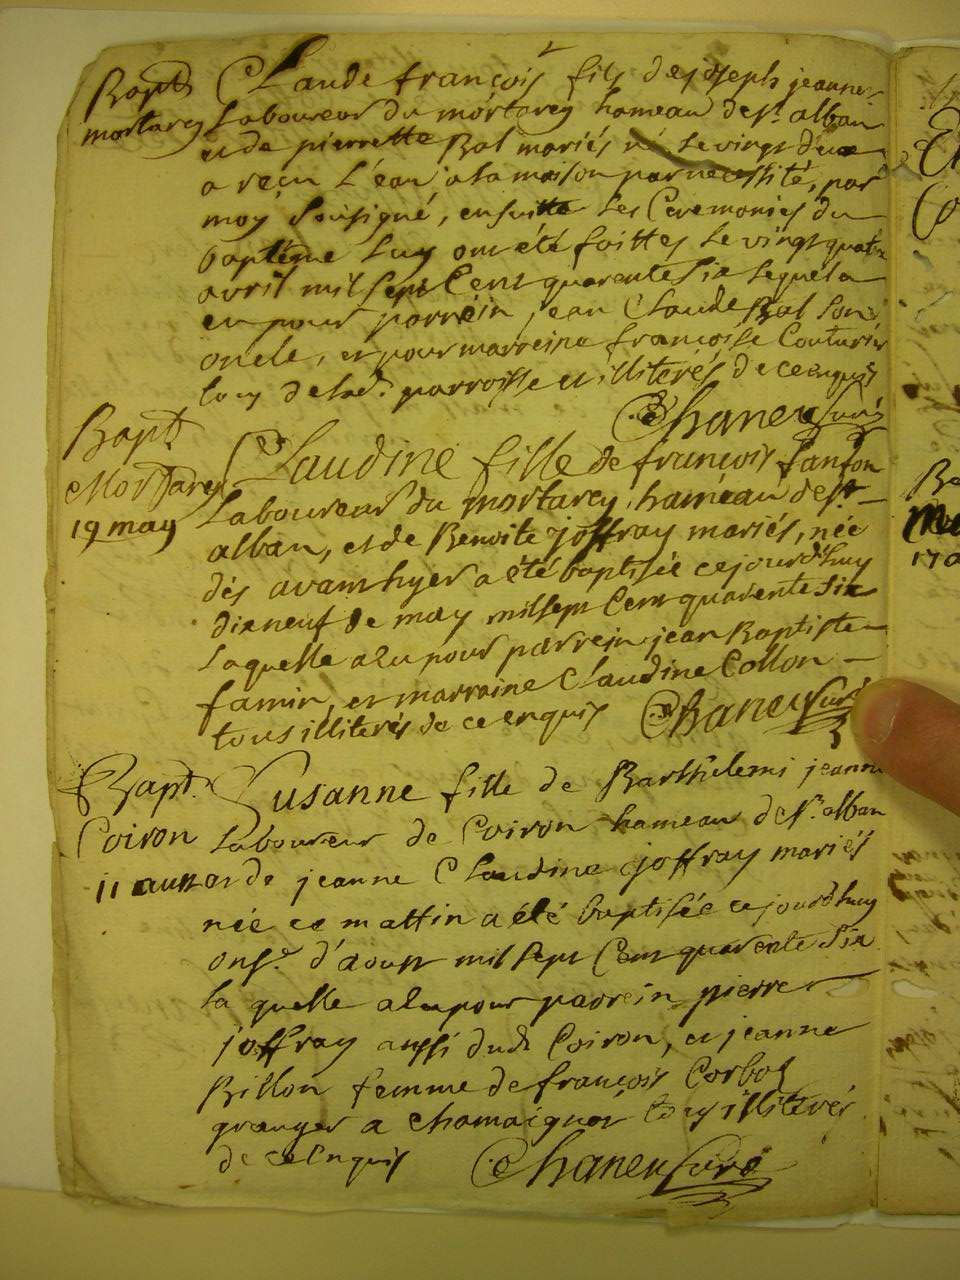 Bapt
mortarey
Claude françois fils de joseph jeanne
Laboureur du mortarey hameau de st. alban
et de pierrette Bal mariés né le vingt deux
a reçu l'eau a la maison par necessité, par
moy Sousigné, ensuitte Les Ceremonies du
baptême luy ont été faittes le vingt quatre
avril mil sept Cent quarente six lequel a
eu pour parrein jean Claude Bal son
oncle, et pour marreine françoise Couturier
tous de lad. parroisse et illiterés de ce enquis
Chaneu Curé
Bapt
Mortarey
19 may
Claudine fille de françois fanton
Laboureur du mortarey hameau de st
alban, et de Benoite joffray mariés, née
dés avant hyer a été baptisée cejourd'huy
dixneuf de may mil sept Cent quarente six
laquelle a eu pour parrein jean Baptiste
famin, et marraine Claudine Collon
tous illiterés de ce enquis
Chaneu Curé
Bapt.
Coiron
11 aust
Susanne fille de Barthelemi jeanne
Laboureur de Coiron hameau de st. alban
et de jeanne Claudine joffray mariés
née ce mattin a été baptisée cejourd'huy
onse d'aoust mil sept Cent quarente six
la quelle a eu pour parrein pierre
joffray aussi dud. Coiron, et jeanne
Billon femme de françois Corbot
granger a Chamaignot tous illiterés
de ce enquis
Chaneu Curé